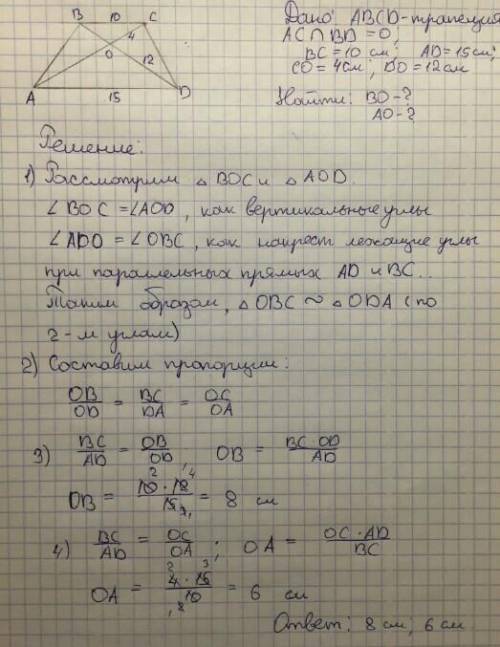 B 10 C
4
O 12
A 15 D
Дано: ABCD-трапеция
AC ∩ BD = O,
BC = 10 см; AD = 15см;
CO = 4см; DO = 12см
Найти: BO - ?
AO - ?
Решение:
1) Рассмотрим △ BOC и △ AOD.
∠ BOC = ∠AOD, как вертикальные углы
∠ ADO = ∠OBC, как накрест лежащие углы
при параллельных прямых AD и BC.
Таким образом, △ OBC ~ △ ODA (по
2-м углам)
2) Составим пропорции:
OB/OD = BC/DA = OC/OA
3) BC/AD = OB/OD, OB = BC·OD/AD
OB = 10·12/15 = 8 см
4) BC/AD = OC/OA; OA = OC·AD/BC
OA = 4·15/10 = 6 см
Ответ: 8 см; 6 см